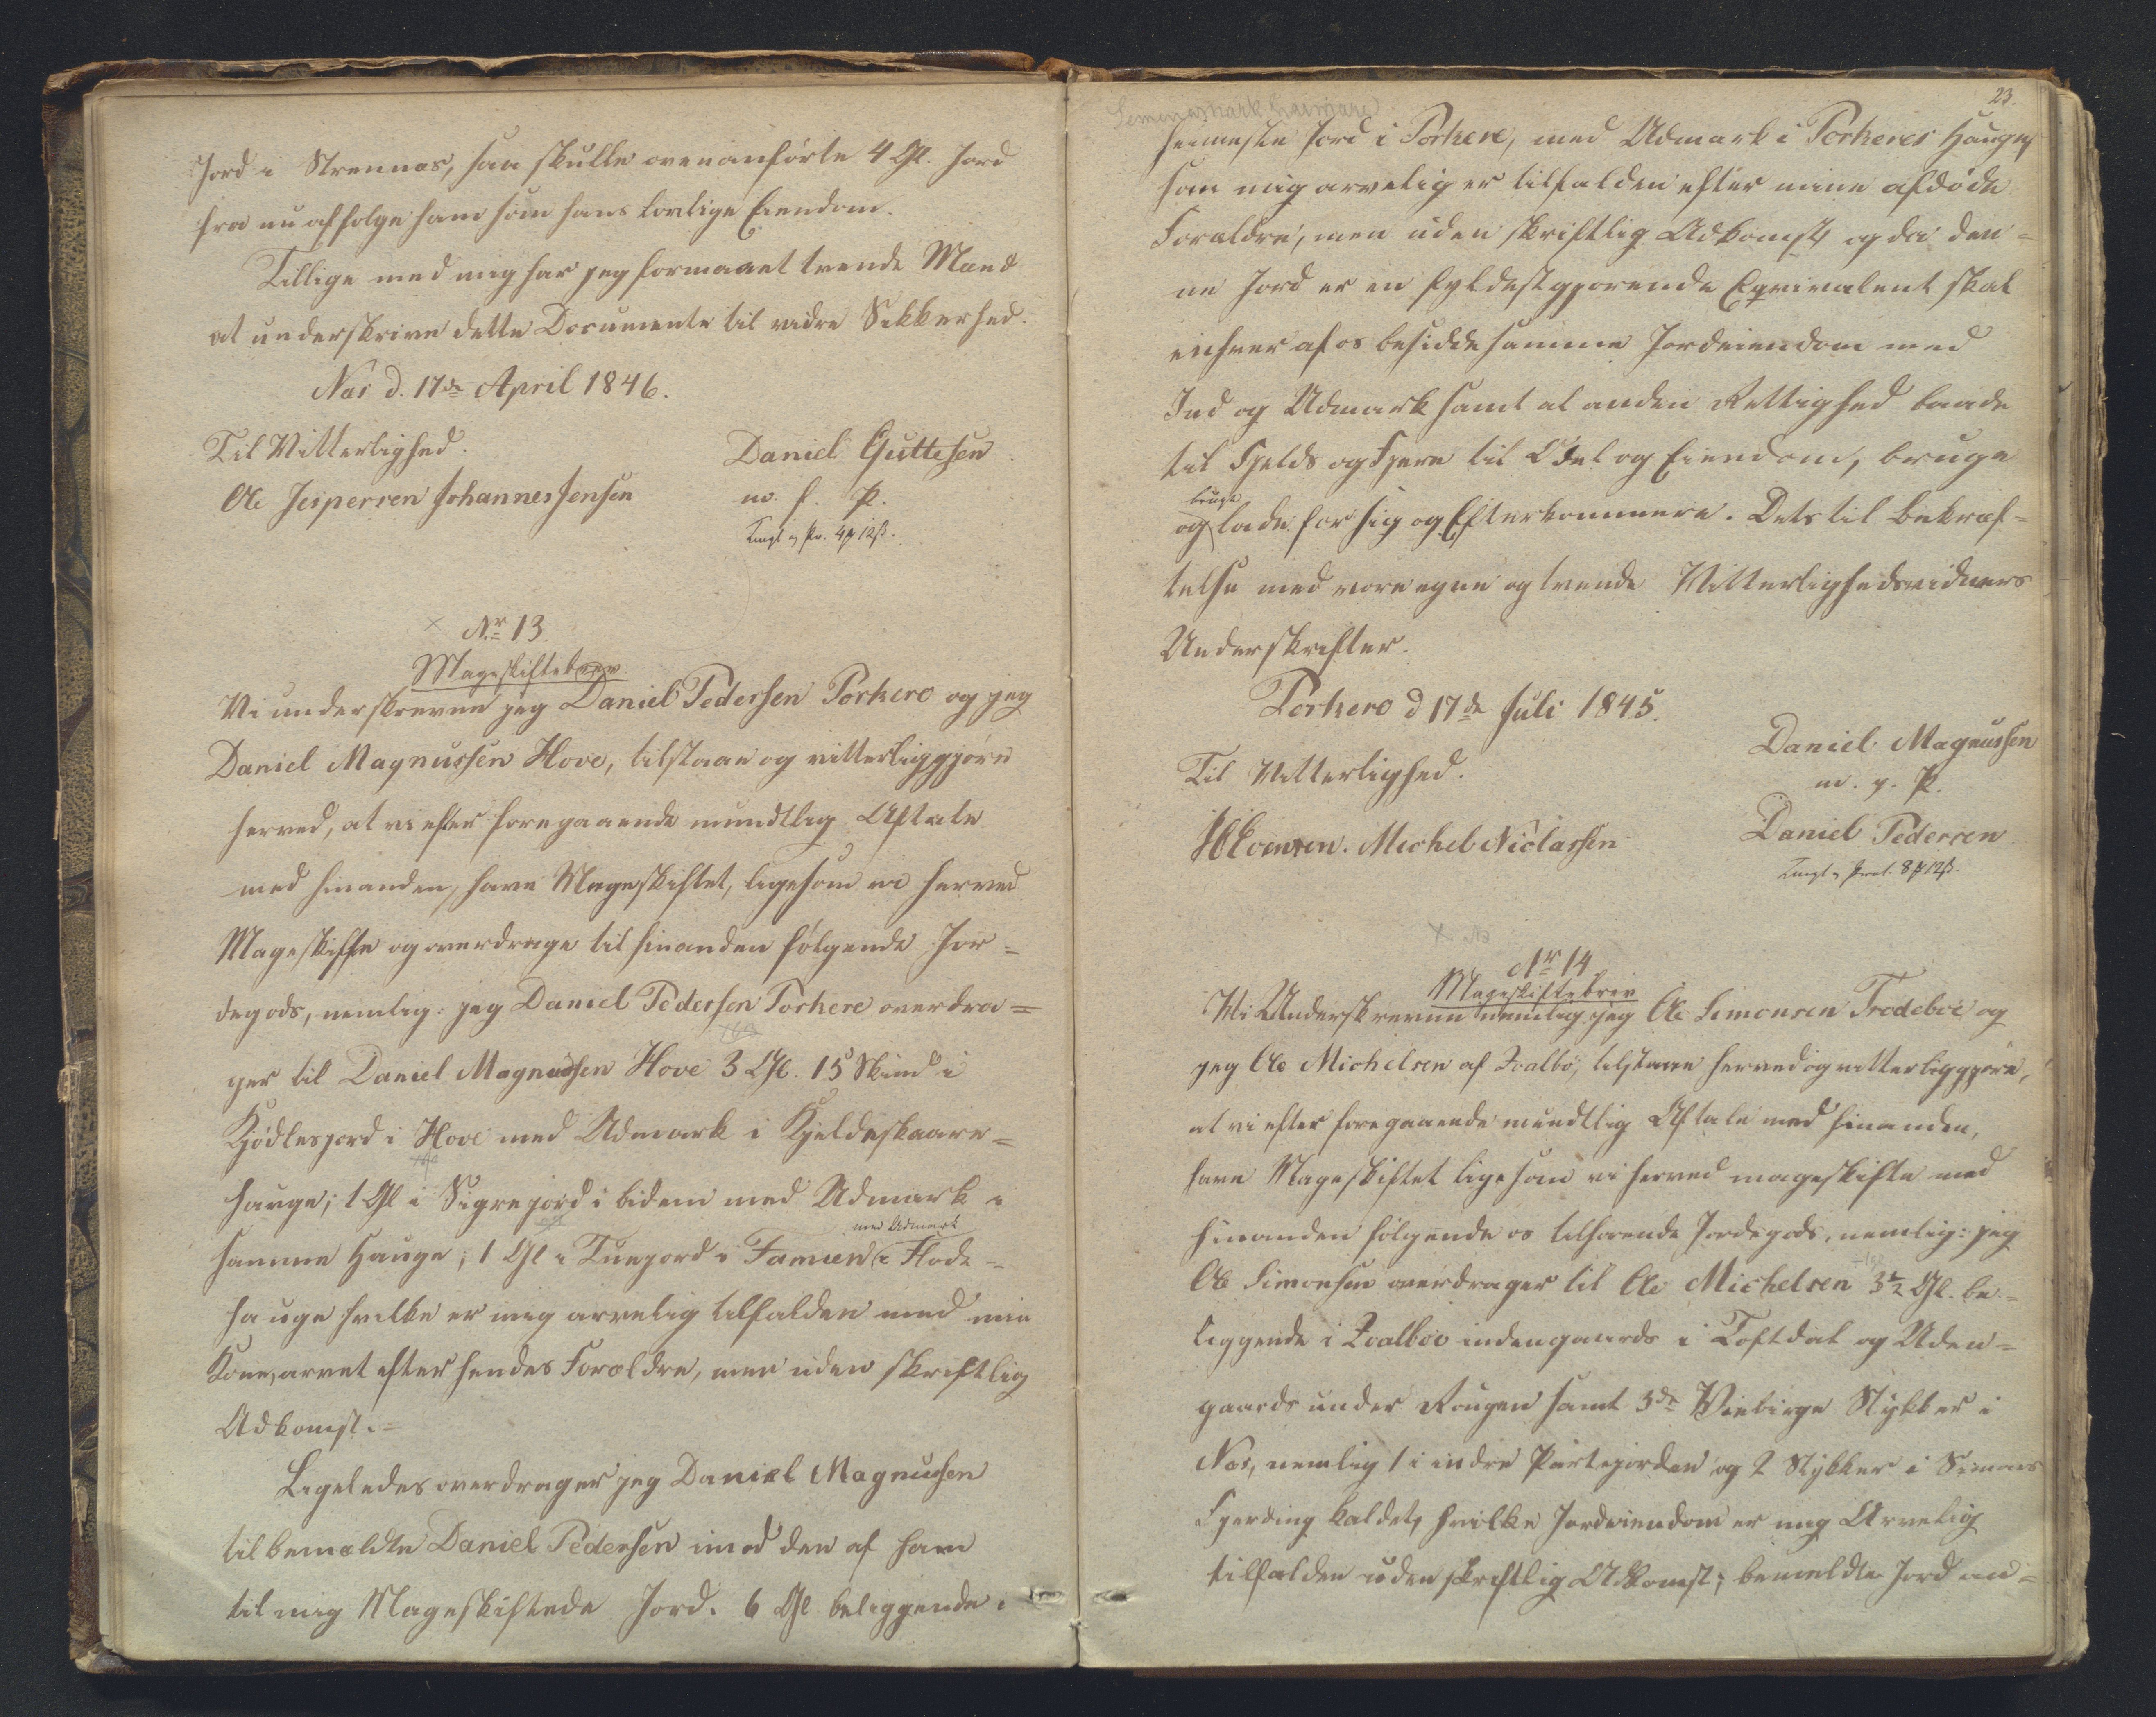 Jord i Strennæs, saa skulle ovenanførte 4 Gl. Jord
fra nu af følge ham som hans lovlige Eiendom.
Tillige med mig har jeg formaaet tvende Mænd
at underskrive dette Document til vidre Sikkerhed.
Næs d. 17de April 1846.
Til Vitterlighed.
Daniel Guttesen
Ole Jespersen Johannes Jensen
m. f. P.
Tingl. og Pr. 4 12ß.
Nr 13.
Mageskiftebrev
Vi underskrevne jeg Daniel Pedersen Porkere og jeg
Daniel Magnussen Hove, tilstaae og vitterliggjøre
herved, at vi efter foregaaende mundtlig Aftale
med hinanden, have Mageskiftet, ligesom vi herved
Mageskifte og overdrage til hinanden følgende Jor=
degods, nemlig: jeg Daniel Pedersen Porkere overdra=
ger til Daniel Magnussen Hove 3 Gl. 15 Skind i
Kjødlesjord i Hove med Udmark i Kjeldeskaare=
hauge; 1 Gl i Sigrejord i bidem med Udmark i
med Udmark
samme Hauge; 1 Gl i Tuejord i Famien i Flode=
hauge hvilke er mig arvelig tilfalden med min
Kone, arvet efter hendes Forældre, men uden skriftlig
Adkomst.=
Ligeledes overdrager jeg Daniel Magnussen
til bemældte Daniel Pedersen imod den af ham
til mig Mageskiftede Jord. 6 Gl beliggende i
23.
heimeste Jord i Porkere, med Udmark i Porkeres Hauge,
som mig arvelig er tilfalden efter mine afdøde
Forældre, men uden skriftlig Adkomst, og da den=
ne Jord er en fyldestgjorende Eqvivalent skal
enhver af os besidde samme Jordeiendom med
Ind og Udmark samt al anden Rettighed baade
til Fjelds og Fjere til Odel og Eiendom, bruge
bruge
og lade for sig og Efterkommere. Dets til bekræf=
telse med vore egne og tvende Vitterlighedsvidners
Underskrifter.
Porkere d 17de Juli 1845.
Daniel Magnussen
Til Vitterlighed.
m. p. P.
Michel Niclassen
Daniel Pedersen
Tingl. Prot. 8 12ß.
Nr 14
Mageskiftebrev
Vi Underskrevne nemlig jeg Ole Simonsen Frodeboe og
jeg Ole Michelsen af Zvalbø, tilstaae herved og vitterliggjøre,
at vi efter foregaaende mundtlig Aftale med hinanden,
have Mageskiftet ligesom vi herved mageskifte med
hinanden følgende os tilhørende Jordegods, nemlig: jeg
Ole Simonsen overdrager til Ole Michelsen 3½ Gl. be=
liggende i Zvalboe indengaards i Toftdal og Uden=
gaards under Rougen samt 3de Viebirge Stykker i
Næs, nemlig 1 i indre Partegjorden og 2 Stykker i Simons
Fjerding kaldet, hvilke Jordeiendom er mig Arvelig
tilfalden uden skriftlig Adkomst; bemeldte Jord an=